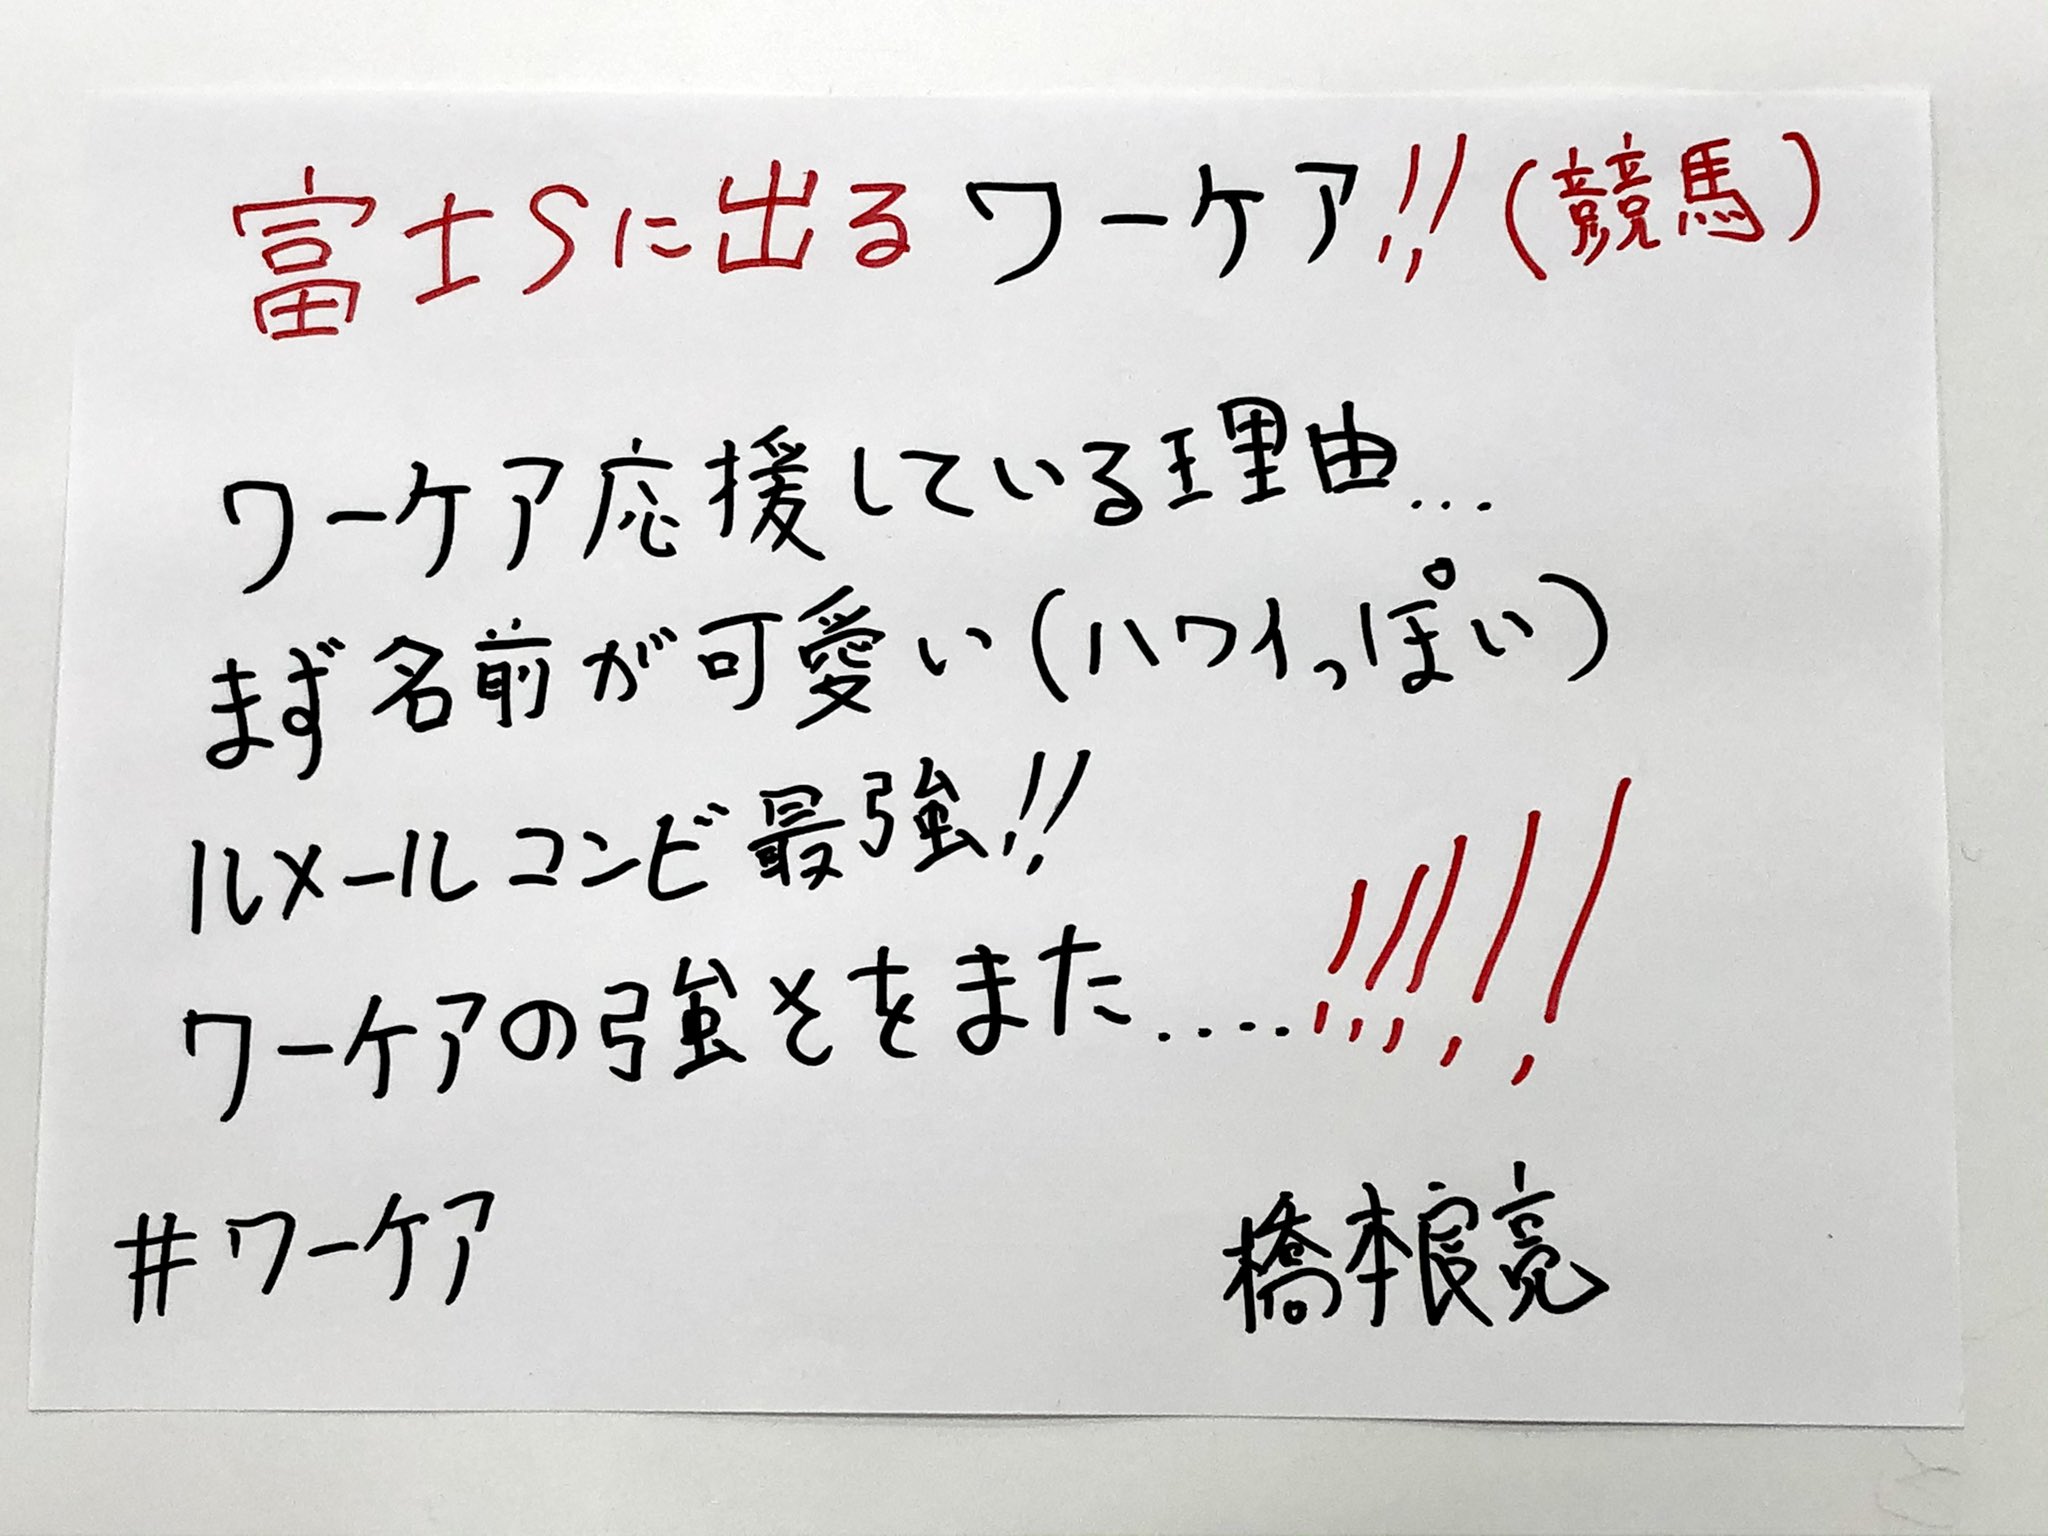 富士Sに出るワーケア!!(競馬)
ワーケア応援している理由...
まず名前が可愛い(ハワイっぽい)
ルメールコンビ最強!!
ワーケアの強さをまた....!!!!!
#ワーケア
橋本良亮